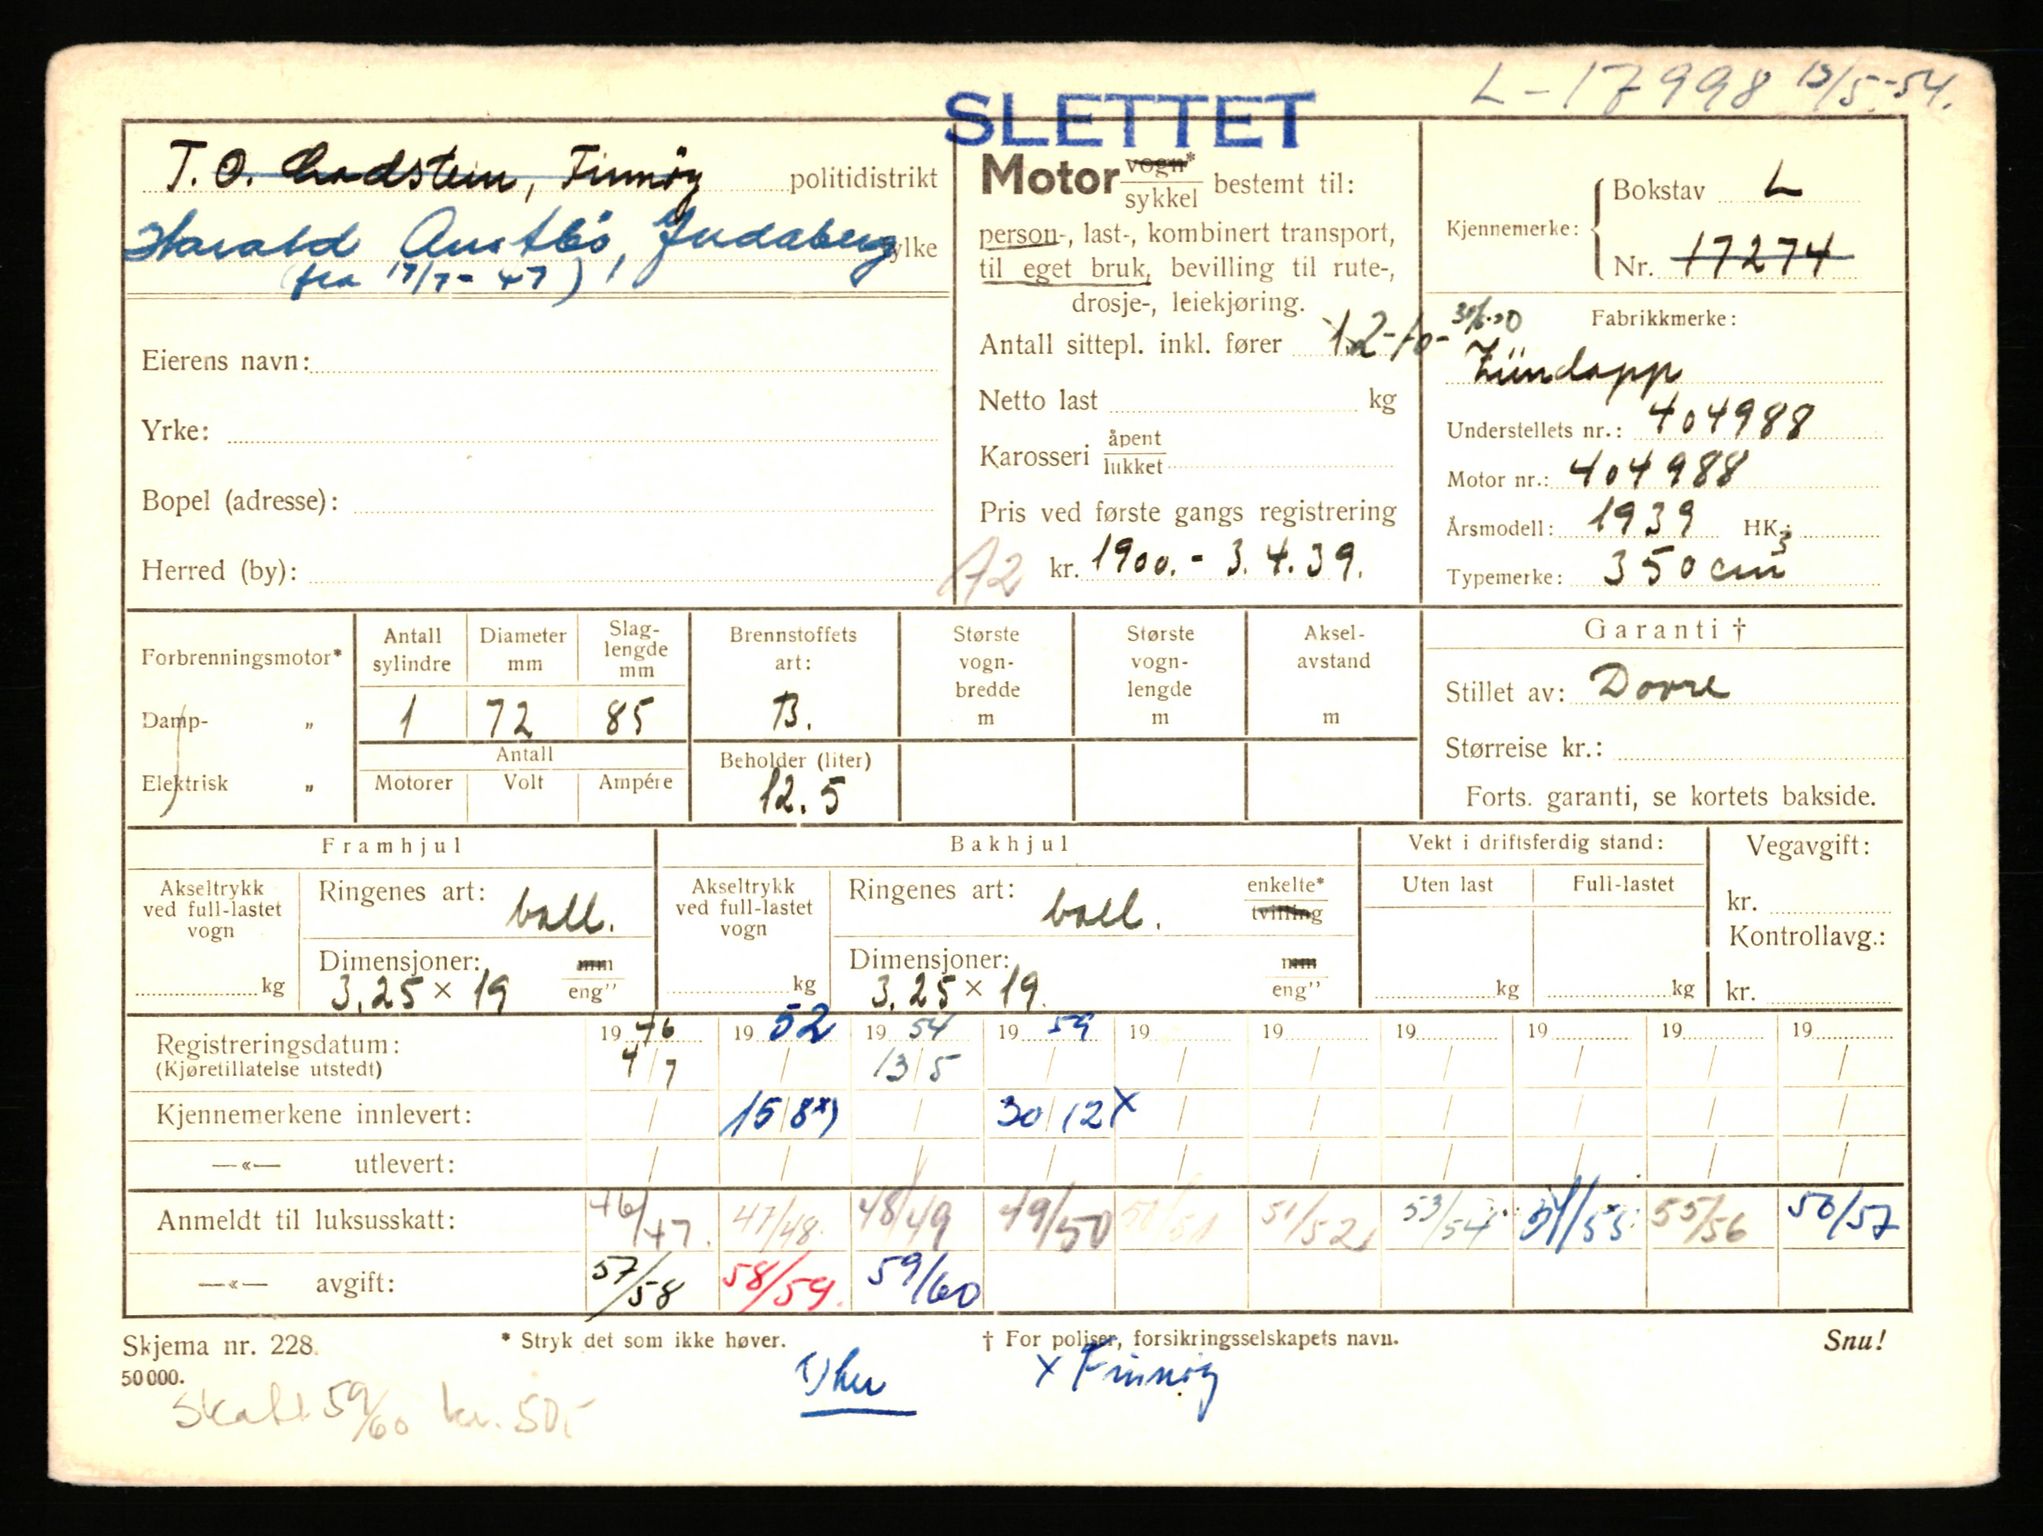 L-17998 13/5-54.
SLETTET
T. O. Ladstein, Finnøy politidistrikt
Harald Austbø, Judaberg ylke
(fra 17/7-47)
Eierens navn:
Yrke:
Bopel (adresse):
Herred (by):
Motor vogn*
sykkel bestemt til:
person-, last-, kombinert transport,
til eget bruk, bevilling til rute-,
drosje-, leiekjøring.
Antall sittepl. inkl. fører
Netto last kg
Karosseri åpent
lukket
Pris ved første gangs registrering
kr. 1900.- 3.4.39.
Kjennemerke: Bokstav L
Nr. 17274
Fabrikkmerke:
Zündapp
Understellets nr.: 404988
Motor nr.: 404988
Årsmodell: 1939 HK.:
Typemerke: 350 cm3
Forbrenningsmotor*
Damp- „
Elektrisk „
Antall sylindre
Diameter mm
Slag-lengde mm
1 72 85
Antall
Motorer Volt Ampére
Brennstoffets art:
B.
Beholder (liter)
12.5
Største vogn-bredde m
Største vogn-lengde m
Aksel-avstand m
Garanti †
Stillet av: Dovre
Størreise kr.:
Forts. garanti, se kortets bakside.
Framhjul
Akseltrykk ved full-lastet vogn
kg
Ringenes art: ball.
Dimensjoner: mm
3.25 × 19 eng”
Bakhjul
Akseltrykk ved full-lastet vogn
kg
Ringenes art: enkelte*
ball. tvilling
Dimensjoner: mm
3.25 × 19. eng”
Vekt i driftsferdig stand:
Uten last Full-lastet
kg kg
Vegavgift:
kr.
Kontrollavg.:
kr.
1946 1952 1954 1959 19 19 19 19 19 19
Registreringsdatum: 4/7 / 13/5 / / / / / / /
(Kjøretillatelse utstedt)
Kjennemerkene innlevert: / 15/8 x) / 30/12 x / / / / / /
—«— utlevert: / / / / / / / / / /
Anmeldt til luksusskatt: 46/47. 47/48. 48/49 49/50 50/51 51/52 53/54 54/55 55/56 56/57
—«— avgift: 57/58 58/59. 59/60
Skjema nr. 228.
50 000.
* Stryk det som ikke høver.
† For poliser, forsikringsselskapets navn.
Snu!
x Finnøy
Skatt 59/60 kr. 50,-